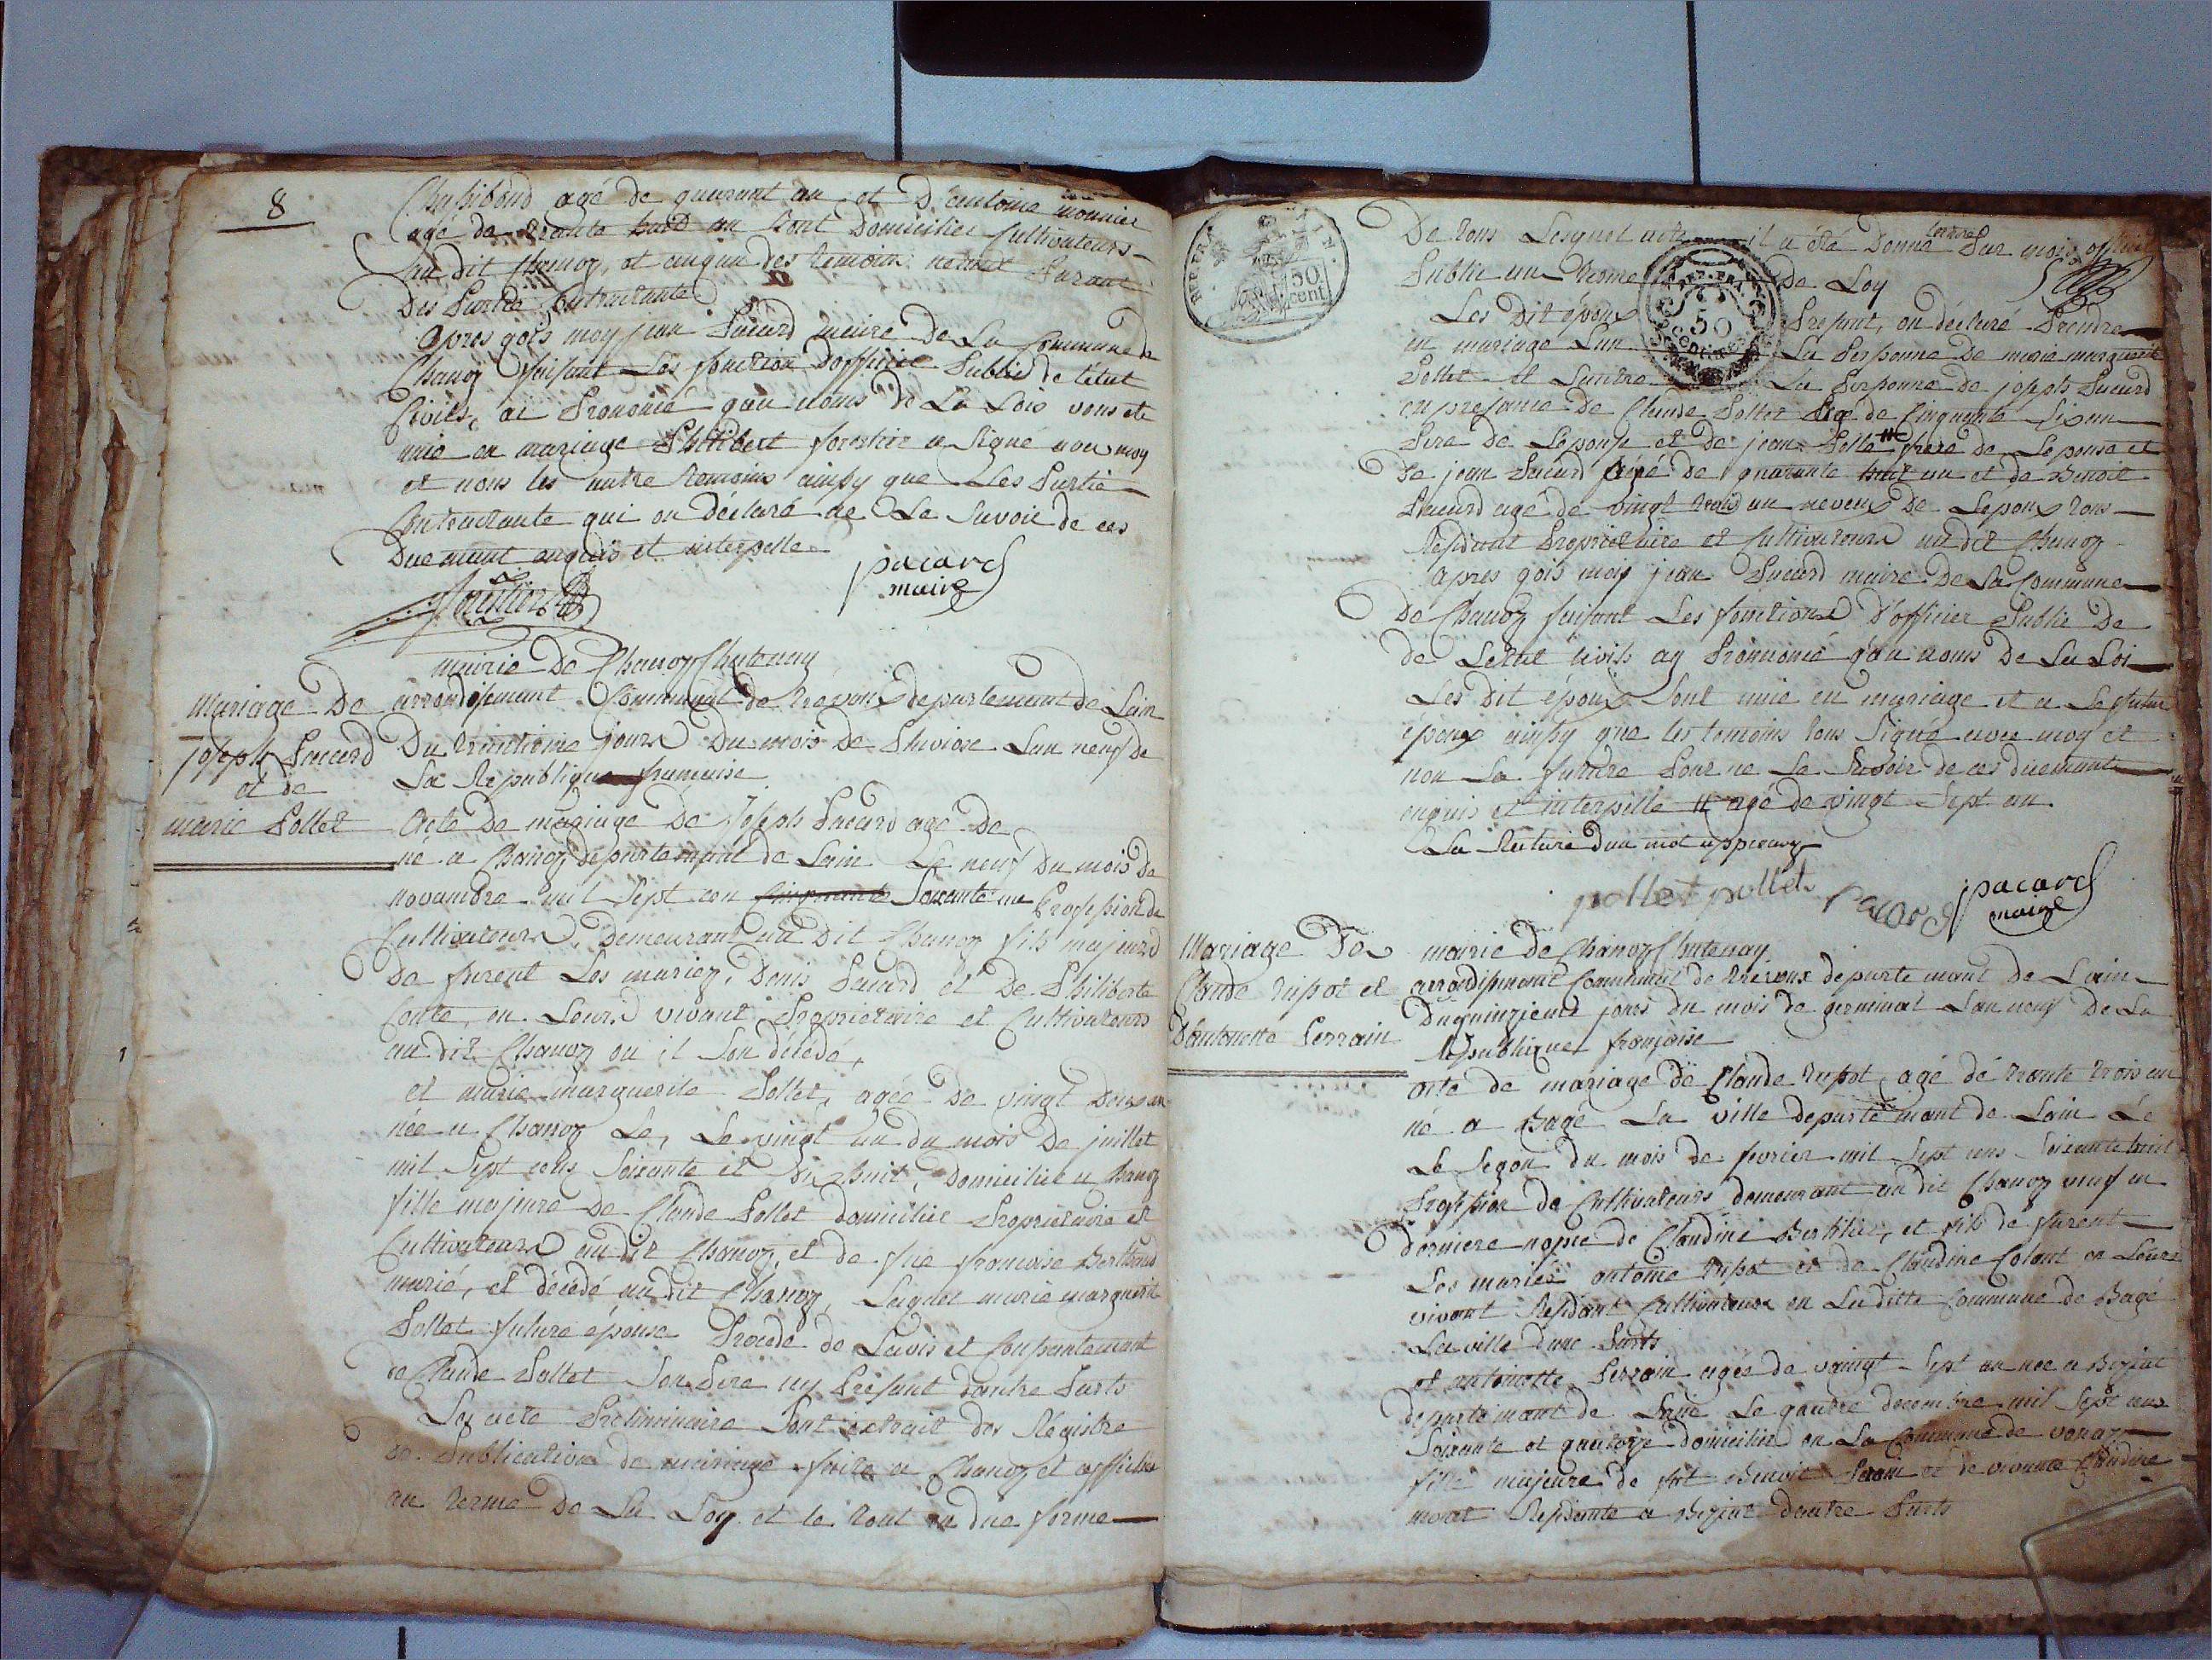 8
agé de quarant an et D antoine monnier
agé de trante huid an tout Domicilier Cultivateurs
au dit Chanoz, et auqun des temoins netant Parant
Des Partie Contractante
apres qois moy jean Pacard maire De La Commune de
Chanoz faisant Les fonction Dofficier Public de Létat
Civils, ai Prononcé qau noms De La Lois vous ete
unie en mariage Philibert forestier a Signé avec moy
et nons les autre temoins ainsy que Les Partie
Contractante qui on déclaré ne Le Savoir de ces
Duemant anquis et interpelle
pacard
maire
mairie De Chanoz Chatenay
Mariage De
joseph Pacard
et de
marie Pollet
arrondissemant Communal de trevoux departemant de Lain
Du trantieme jours Du mois De Pluviose Lan neuf de
La Republique francaise
Acte De mariage De Joseph Pacard agé De
né a Chanoz departemant de Lain Le neuf Du mois de
novambre mil Sept cen cinquante Soixante me Profession de
Cultivateurs, Demeurant au Dit Chanoz fils majeurs
De furent Les mariez, Denis Pacard et De Philiberte
Conte, en Leurs vivant Proprietaire et Cultivateurs
au dit Chanoz ou il Son décédé,
et marie marguerite Pollet, agée De vingt Deux an
née a Chanoz Le, Le vingt un du mois De juillet
mil Sept cens Soixante et Dix huit, Domicilié a Chanoz
fille majeure De Claude Pollet domicilié Proprietaire et
Cultivateurs au dit Chanoz, et de fue francoise Berthoud
marié, et décédé au dit Chanoz, Laquel marie marguerit
Pollet future épouse Procede de Lavis et Consantemant
de Claude Pollet Son Pere icy Présant dautre Parts
Les acte Preliminaire Sont extrait des Registre
de Publication de mariage faite a Chanoz et affiche
au terme De La Loy et le tout en due forme
De tous Lesquel acte il a été Donné lecture Par moi officier
Public au terme De Loy
Les Dit époux Present, on déclaré Prendre
en mariage Lun La Personne De marie marguerite
Pollet et Lautre La Personne de joseph Pacard
en presance de Claude Pollet agé de Cinquante Six an
Pere de Lepouse et De jean Pollet # frere de Lepouse et
De jean Pacard agé De quarante huit an et de Benoit
Pacard agé de vingt trois an neveux De Lepoux tous
Résidant Proprietaire et Cultivateurs au dit Chanoz
apres qois moy jean Pacard maire De La Commune
De Chanoz faisant Les fonctions D'officier Public De
de Letat Civils ay Prononcé qau noms De La Loi
Les Dit époux Sont unie en mariage et a Le futur
époux ainsy que les temoins tous Signé avec moy et
non La future Pour ne Le Savoir de ces duemant
enquis et interpellé # agé de vingt Sept an
La Rature dun mot approuvez
pollet pollet pacard pacard
maire
Mariage De
Claude tupot et
Dantoinette Perrain
mairie de Chanoz Chatenay
arrondissemant Communal de trevoux departemant de Lain
Du quinzieme jours du mois de germinal Lan neuf De La
Republique françoise
acte de mariage de Claude tupot, agé de trante trois an
né a Bagé La ville departemant de Lain Le
Le Segon du mois de fevrier mil Sept cens Soixante huit
Profession de Cultivateurs demeurant au dit Chanoz veuf en
derniere nopce de Claudine Berthlier, et fils de furent
Les mariés antoine tupot et de Claudine Colant en Leurs
vivant Residant Cultivateurs en La ditte Commune de Bagé
La ville dune Parts
et antoinette Perrain agée de vaingt Sept an née a Biziat
departemant de Laine Le quatre decembre mil Sept cens
Soixante et quatorze domicilié en La Commune de vonas
fille majeure de fut Benoit Perain et de vivante Claudine
morat Residante a Biziat dautre Parts